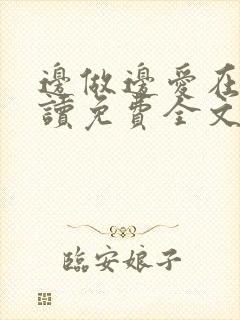 邊做邊愛在
讀免費全文
臨安娘子